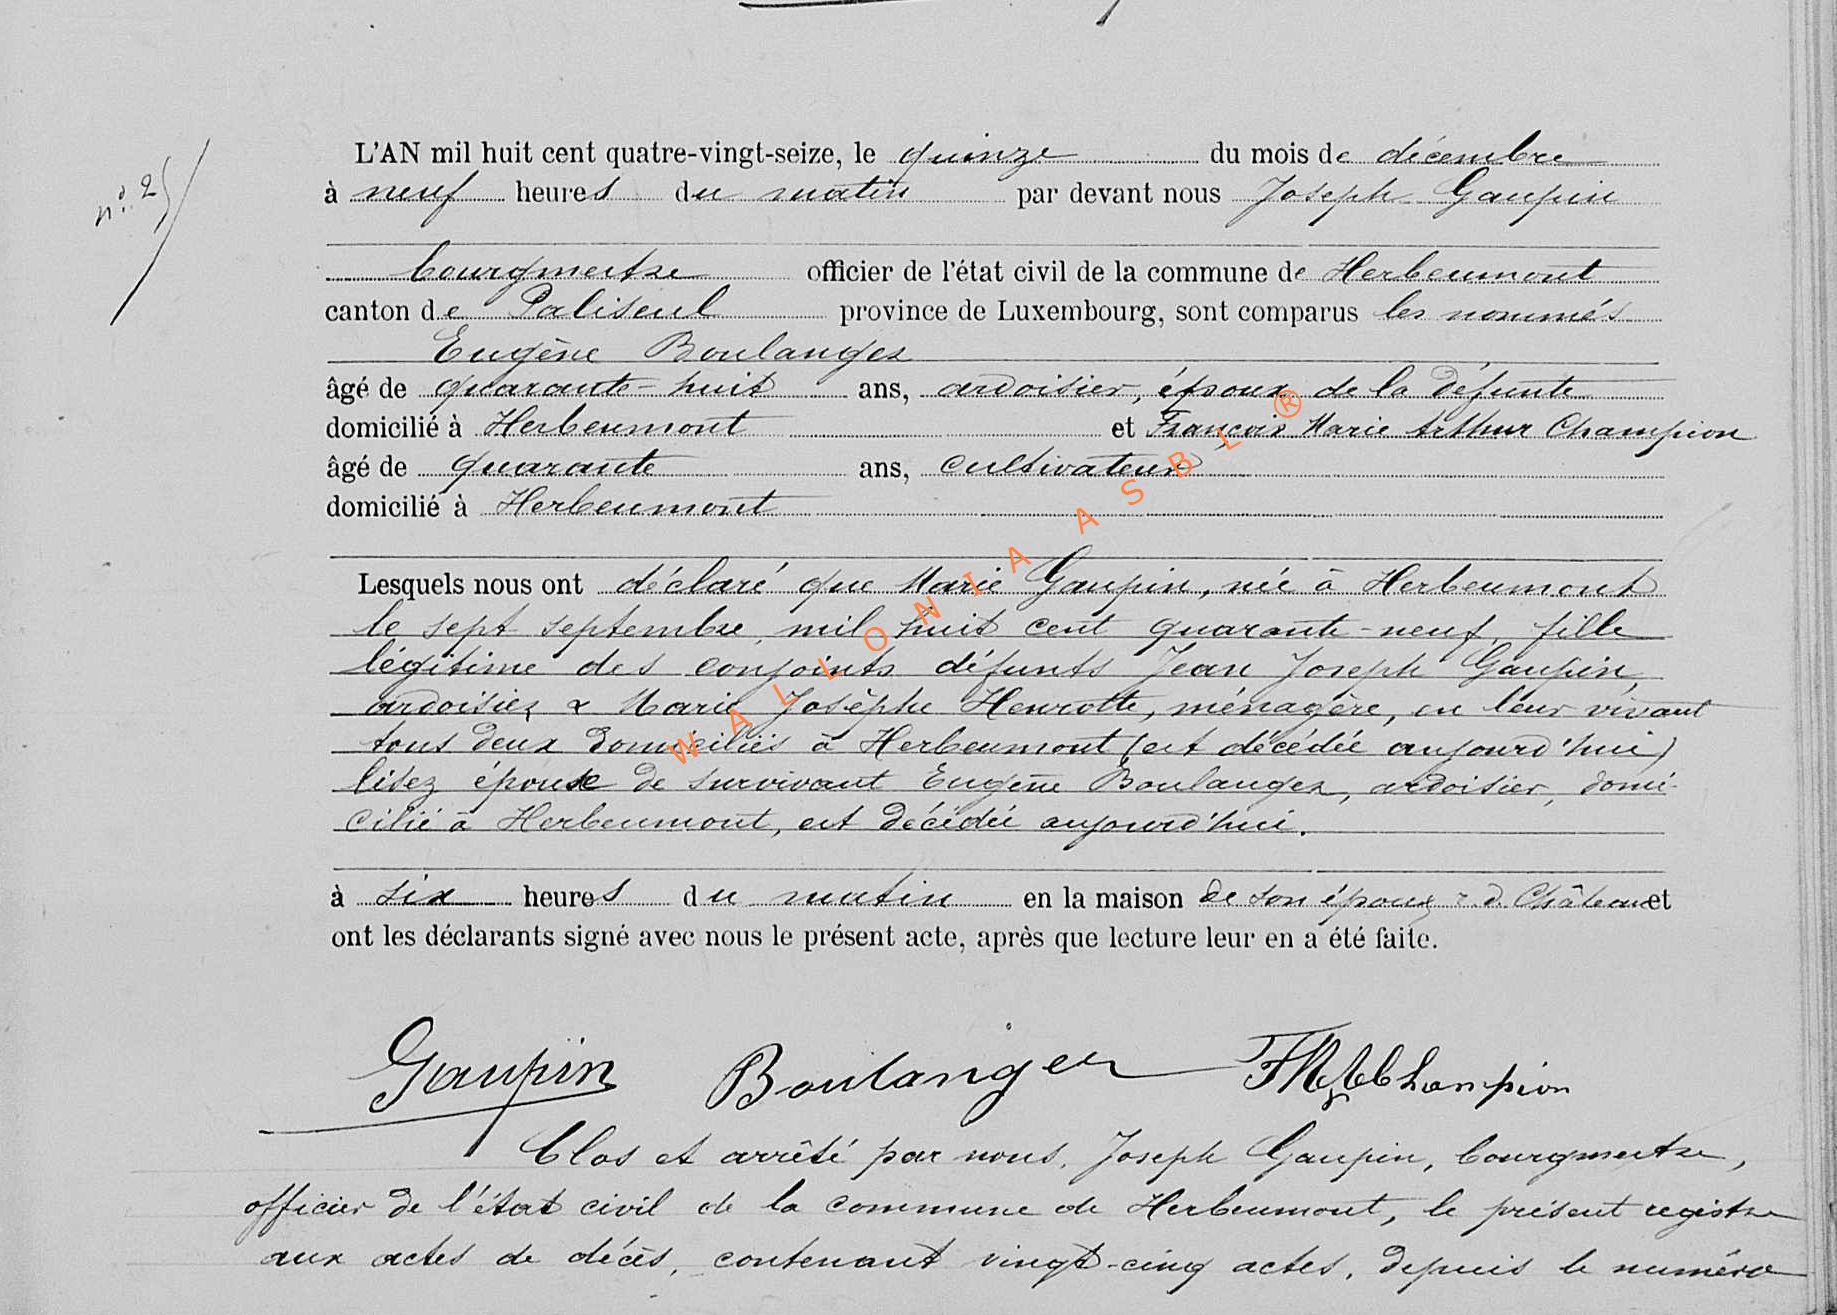 n° 25
L'AN mil huit cent quatre-vingt-seize, le quinze du mois de décembre
à neuf heures du matin par devant nous Joseph Gaupin
bourgmestre officier de l'état civil de la commune de Herbeumont
canton de Paliseul province de Luxembourg, sont comparus les nommés
Eugène Boulanger
âgé de quarante-huit ans, ardoisier, époux de la défunte
domicilié à Herbeumont et François Marie Arthur Champion
âgé de quarante ans, cultivateur
domicilié à Herbeumont
Lesquels nous ont déclaré que Marie Gaupin, née à Herbeumont
le sept septembre, mil huit cent quarante-neuf, fille
légitime des conjoints défunts Jean Joseph Gaupin,
ardoisier & Marie Josèphe Henrotte, ménagère, en leur vivant
tous deux domiciliés à Herbeumont (est décédée aujourd'hui)
lisez épouse de survivant Eugène Boulanger, ardoisier, domi-
cilié à Herbeumont, est décédée aujourd'hui.
à six heures du matin en la maison de son époux r. d. Château et
ont les déclarants signé avec nous le présent acte, après que lecture leur en a été faite.
Gaupin Boulanger FMAChampion
Clos et arrêté par nous, Joseph Gaupin, bourgmestre,
officier de l'état civil de la commune de Herbeumont, le présent registre
aux actes de décès, contenant vingt-cinq actes, depuis le numéro
WALLONIA ASBL ®